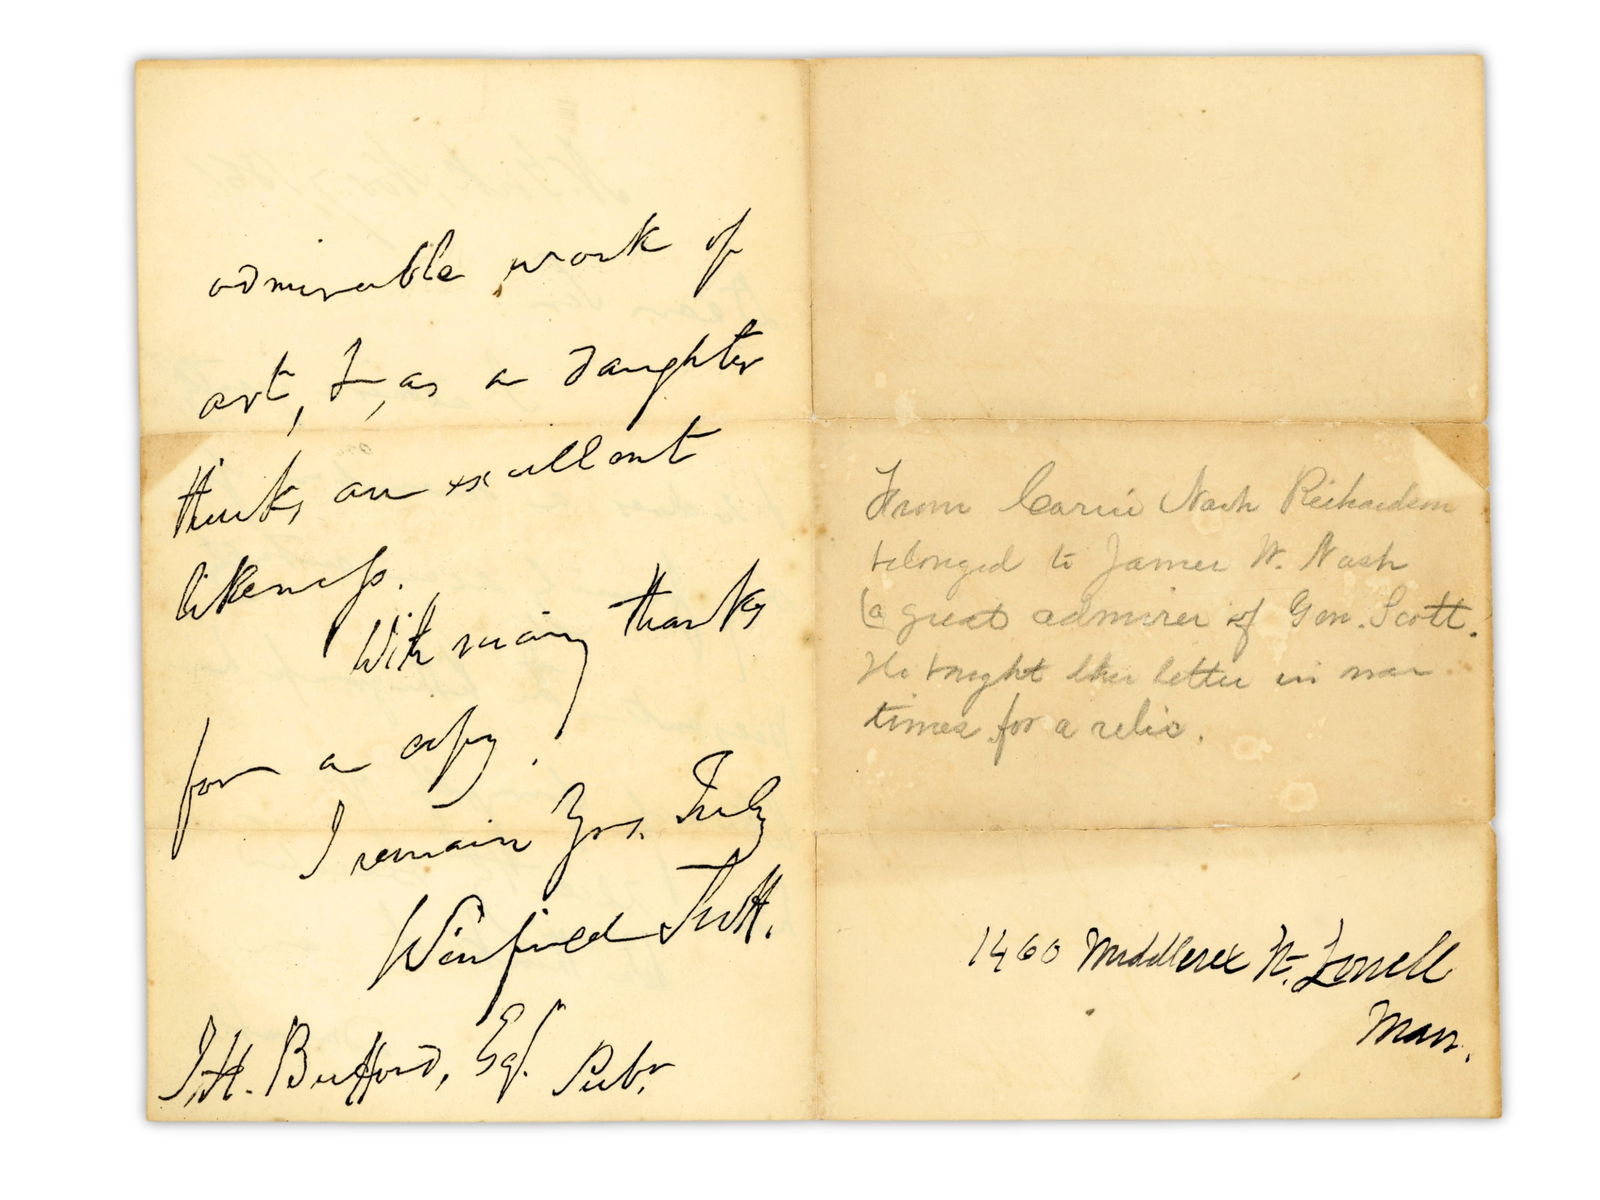 admirable work of
art, I, as a daughter
thinks an excellent
likeness.
With many thanks
for a copy,
I remain Yrs. Truly
Winfield Scott.
J.H. Bufford, Esq. Pubr.
From Carrie Nash Richardson
belonged to James W. Nash
(a great admirer of Gen. Scott.
He bought this letter in war
times for a relic.
1460 Middlesex St. Lowell
Mass.